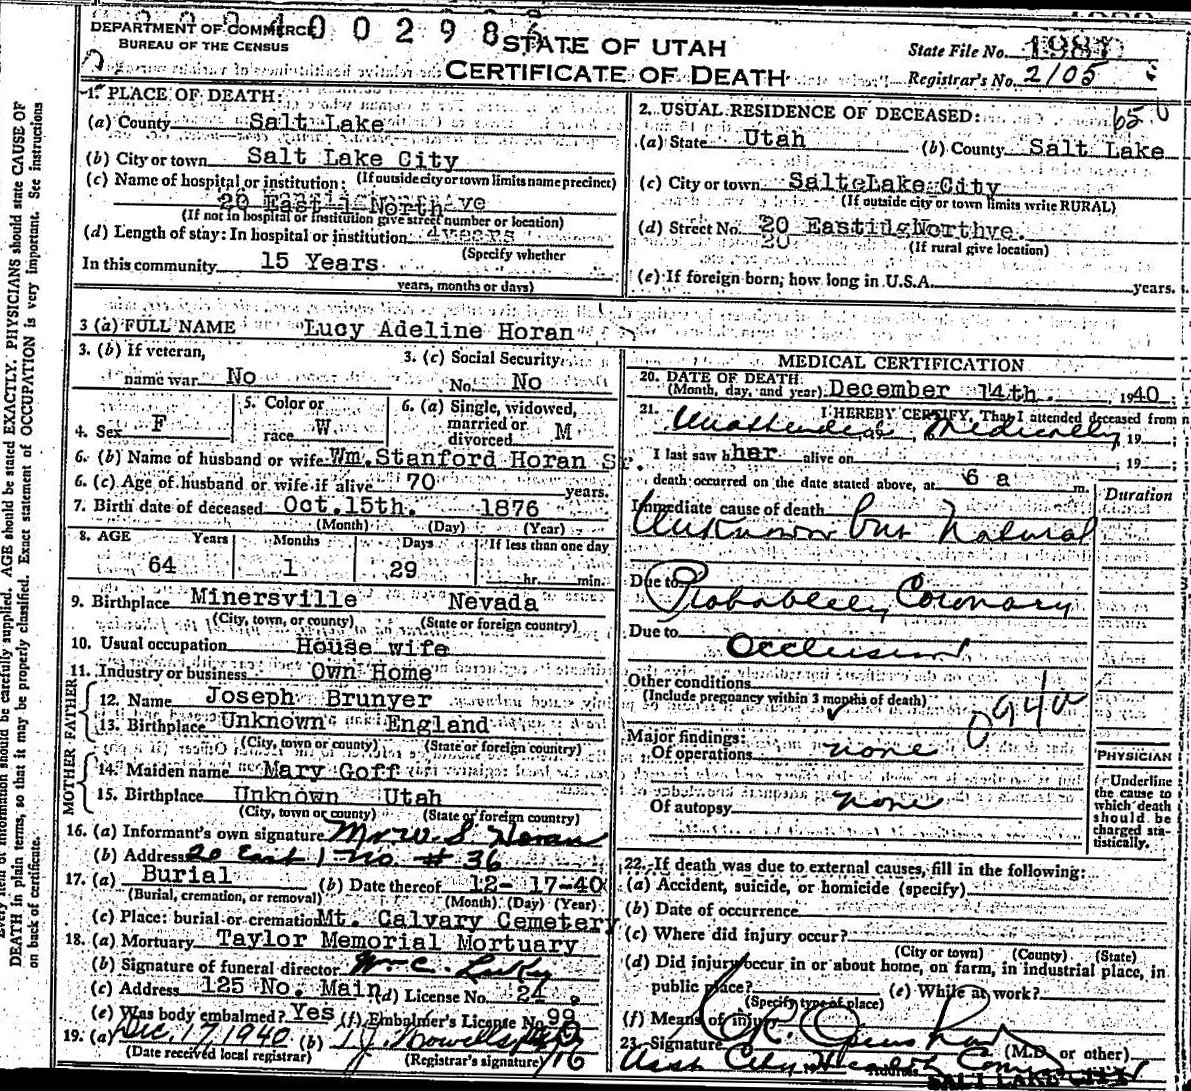 DEPARTMENT OF COMMERCE
BUREAU OF THE CENSUS
STATE OF UTAH
CERTIFICATE OF DEATH
State File No. 1981
Registrar's No. 2105
1. PLACE OF DEATH:
(a) County Salt Lake
(b) City or town Salt Lake City
(If outside city or town limits name precinct)
(c) Name of hospital or institution:
20 East North
(If not in hospital or institution give street number or location)
(d) Length of stay: In hospital or institution 4years
(Specify whether
In this community 15 Years
years, months or days)
2. USUAL RESIDENCE OF DECEASED:
(a) State Utah (b) County Salt Lake
(c) City or town Salt Lake City
(If outside city or town limits write RURAL)
(d) Street No. 20 East
(If rural give location)
(e) If foreign born, how long in U.S.A. years.
3 (a) FULL NAME Lucy Adeline Horan
3. (b) If veteran,
name war No
3. (c) Social Security
No. No
4. Sex F
5. Color or
race W
6. (a) Single, widowed,
married or
divorced M
6. (b) Name of husband or wife Wm. Stanford Horan Sr.
6. (c) Age of husband or wife if alive 70 years.
7. Birth date of deceased Oct. 15th. 1876
(Month) (Day) (Year)
8. AGE Years Months Days If less than one day
64 1 29 hr. min.
9. Birthplace Minersville Nevada
(City, town, or county) (State or foreign country)
10. Usual occupation House wife
11. Industry or business Own Home
FATHER
12. Name Joseph Brunyer
13. Birthplace Unknown England
(City, town or county) (State or foreign country)
MOTHER
14. Maiden name Mary Goff
15. Birthplace Unknown Utah
(City, town or county) (State or foreign country)
16. (a) Informant's own signature Mr W. S. Horan
(b) Address 20 East 1-No. # 36
17. (a) Burial (b) Date thereof 12-17-40
(Burial, cremation, or removal) (Month) (Day) (Year)
(c) Place: burial or cremation Mt. Calvary Cemetery
18. (a) Mortuary Taylor Memorial Mortuary
(b) Signature of funeral director
(c) Address 125 No. Main (d) License No. 24
(e) Was body embalmed? Yes (f) Embalmer's License No. 99
19. (a) Dec. 17, 1940 (b)
(Date received local registrar) (Registrar's signature)
MEDICAL CERTIFICATION
20. DATE OF DEATH
(Month, day, and year) December 14th. 1940.
21. I HEREBY CERTIFY, That I attended deceased from
Unattended Medically 19
I last saw her alive on 19
death occurred on the date stated above, at 6 a m.
Duration
Immediate cause of death
Unknown but Natural
Due to Probablely Coronary
Due to Occlusion
Other conditions
(Include pregnancy within 3 months of death)
094a
Major findings:
Of operations none
Of autopsy none
PHYSICIAN
Underline
the cause to
which death
should be
charged sta-
tistically.
22. If death was due to external causes, fill in the following:
(a) Accident, suicide, or homicide (specify)
(b) Date of occurrence
(c) Where did injury occur?
(City or town) (County) (State)
(d) Did injury occur in or about home, on farm, in industrial place, in
public place? (e) While at work?
(Specify type of place)
(f) Means of injury
23. Signature (M.D. or other)
SALT LAKE CITY
DEATH in plain terms, so that it may be properly classified. Exact statement of OCCUPATION is very important. See instructions
on back of certificate.